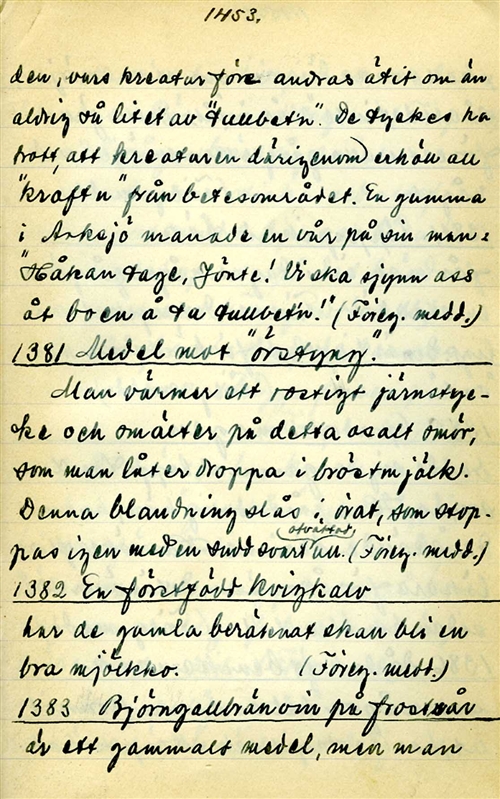 1453.
den, vars kreatur före andras ätit om än
aldrig så litet av "tullbet'n". De tyckes ha
trott, att kreaturen därigenom erhöll all
"kraft'n" från betesområdet. En gumma
i Anksjö manade en vår på sin man:
"Håkan tage, Jönte! Vi ska sjynn ass
åt boen å ta tullbet'n!" (Föreg. medd.)
1381 Medel mot "örstyng".
Man värmer ett rostigt järnstyc-
ke och smälter på detta osalt smör,
som man låter droppa i bröstmjölk.
Denna blandning slås i örat, som stop-
pas igen med en sudd otvättad svart ull. (Föreg. medd.)
1382 En förstfödd kvigkalv
har de gamla beräknat skan bli en
bra mjölkko. (Föreg. medd.)
1383 Björngallbränvin på frostsår
är ett gammalt medel, men man